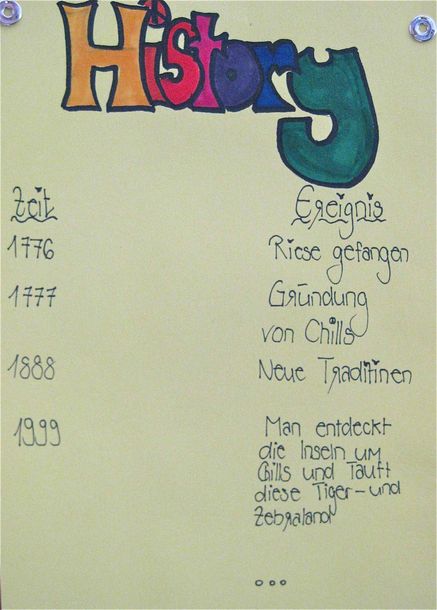 History
Zeit Ereignis
1776 Riese gefangen
1777 Gründung
von Chills
1888 Neue Traditinen
1999 Man entdeckt
die Inseln um
Chills und Tauft
diese Tiger- und
Zebraland
...